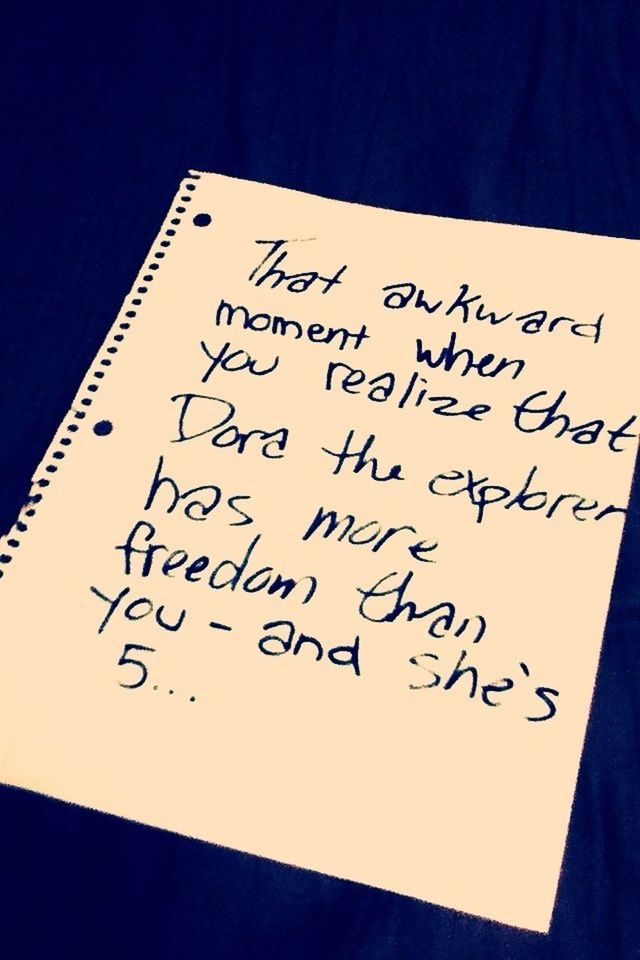 That awkward
moment when
you realize that
Dora the explorer
has more
freedom than
you - and she's
5...